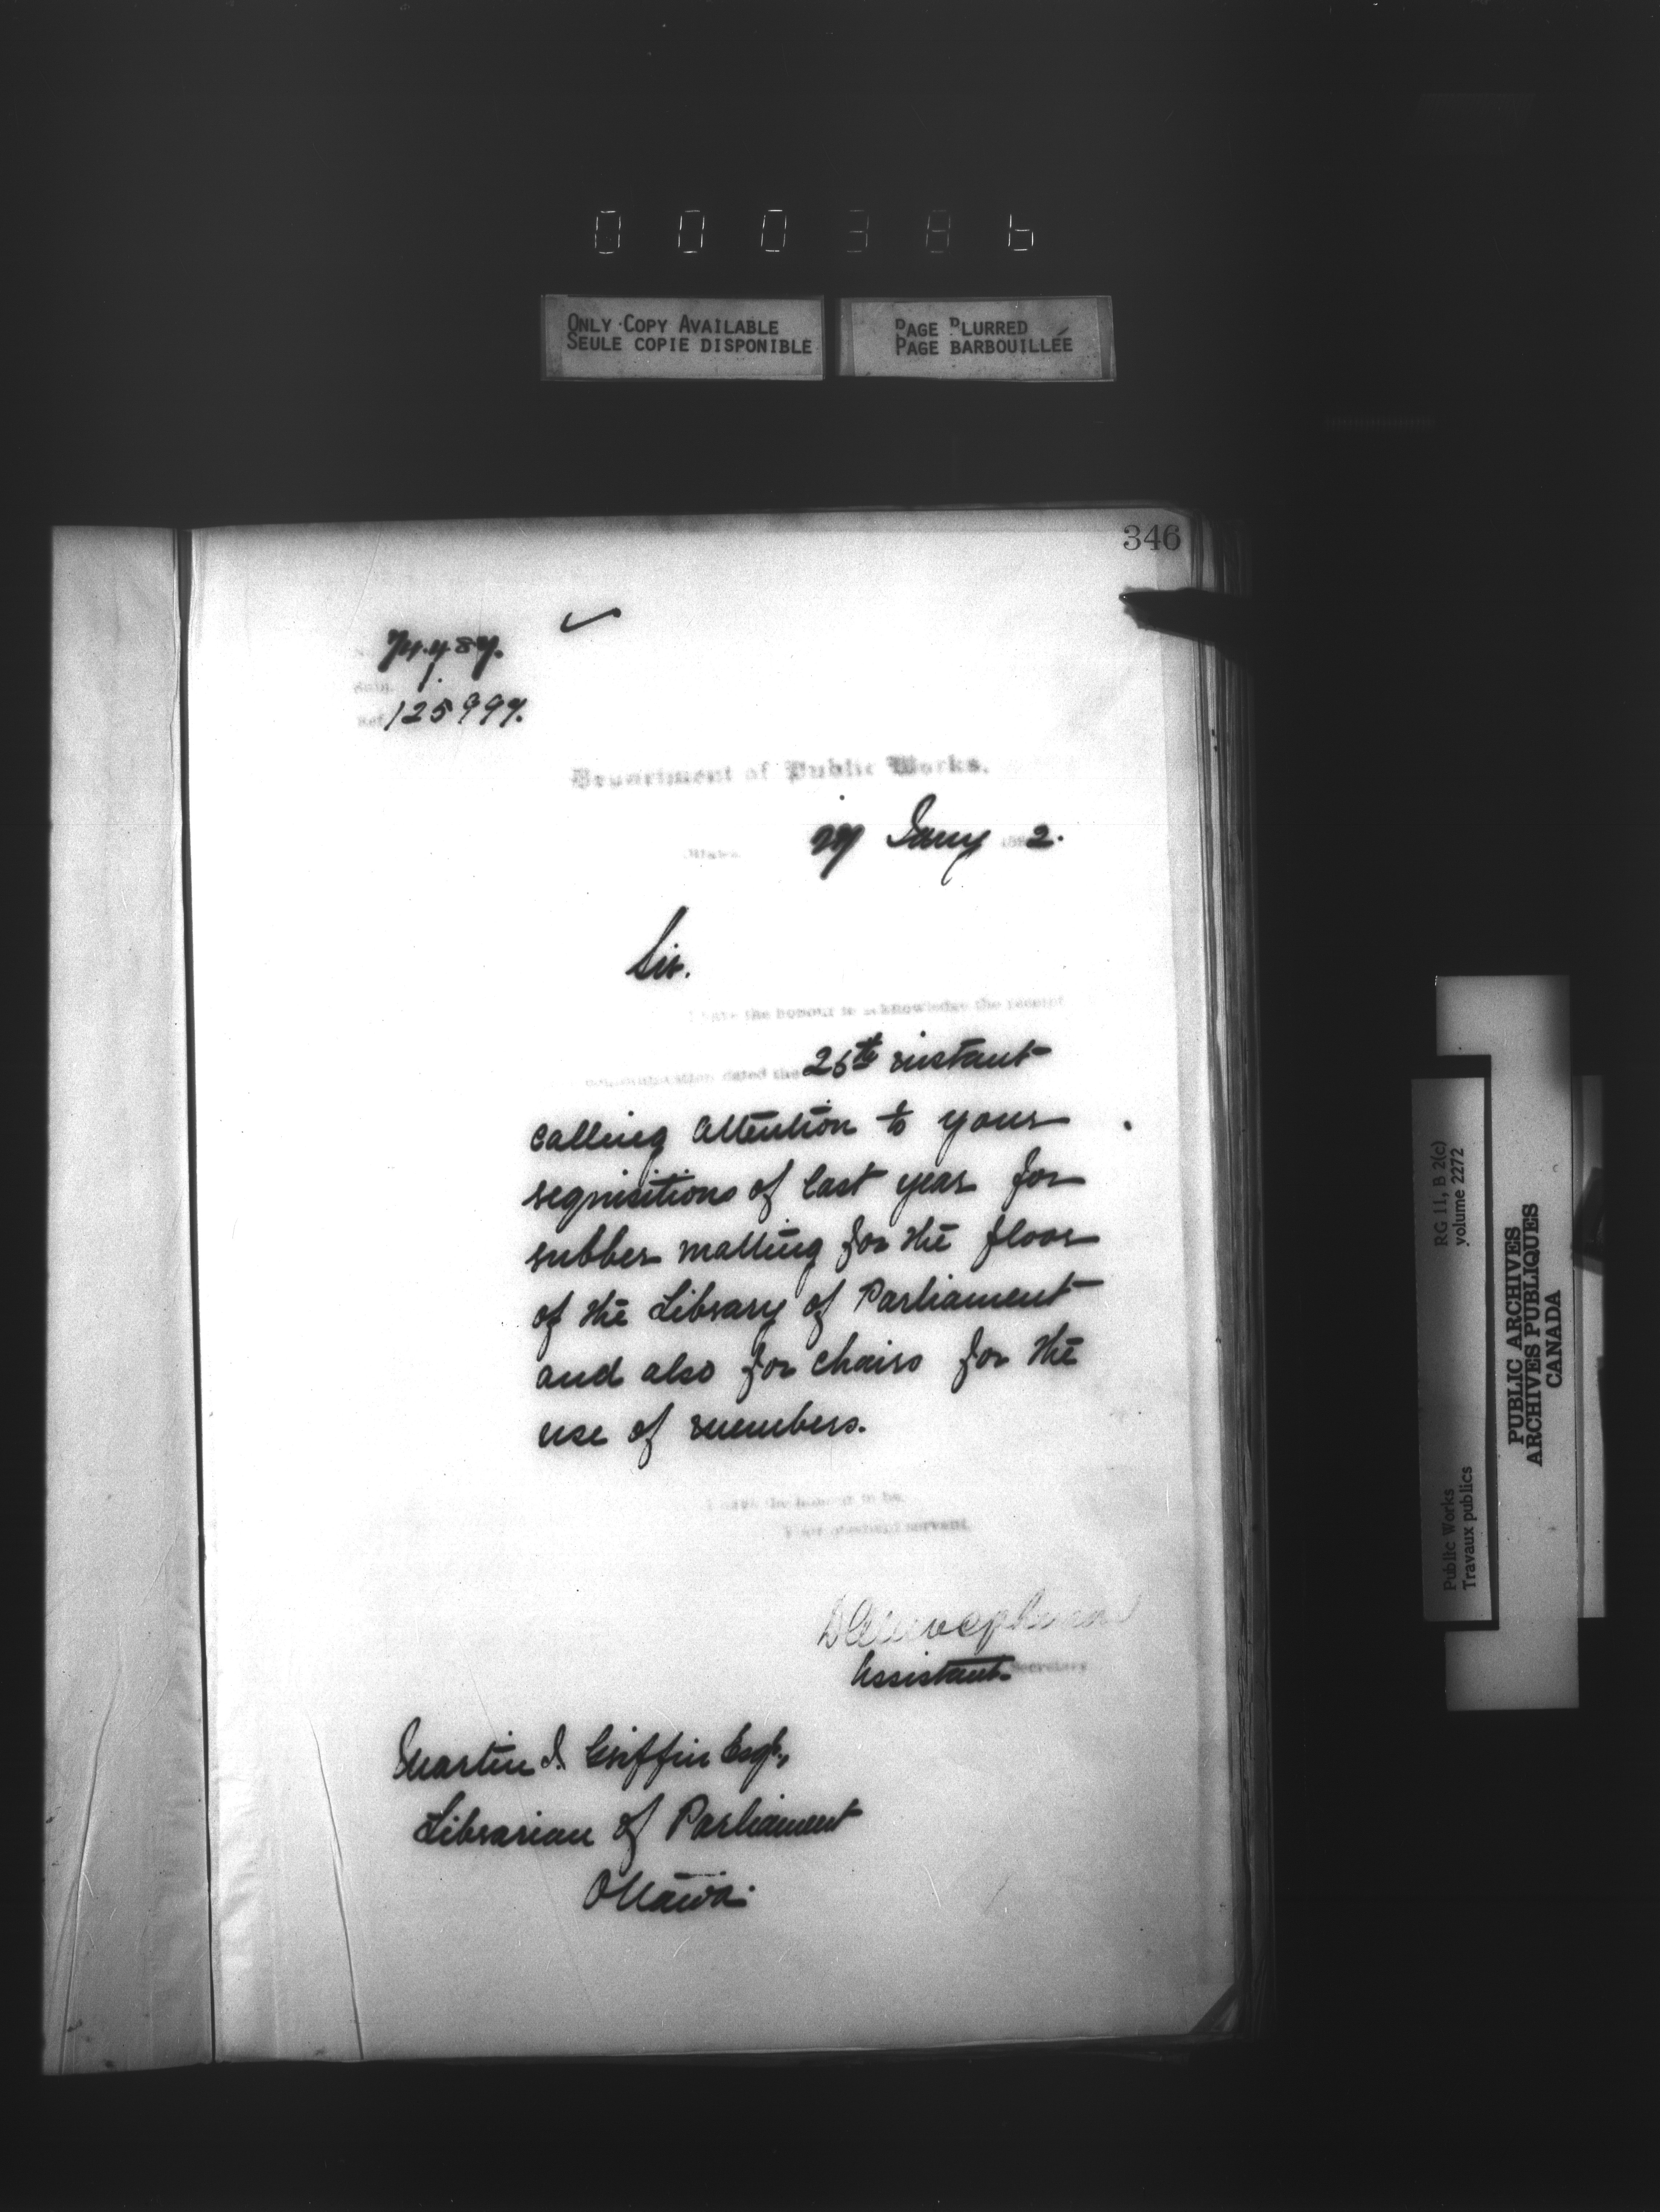 ONLY COPY AVAILABLE
SEULE COPIE DISPONIBLE
PAGE BLURRED
PAGE BARBOUILLÉE
346
Subj.
Ref. 125999.
Department of Public Works.
Ottawa 27 Jany 1892.
Sir.
I have the honour to acknowledge the receipt
communication dated the 26th instant
calling attention to your
requisitions of last year for
rubber matting for the floor
of the Library of Parliament
and also for chairs for the
use of members.
I have the honour to be,
Your obedient servant,
Assistant Secretary
Martin J. Griffin Esqr.,
Librarian of Parliament
Ottawa.
RG 11, B 2(c)
volume 2272
Public Works
Travaux publics
PUBLIC ARCHIVES
ARCHIVES PUBLIQUES
CANADA